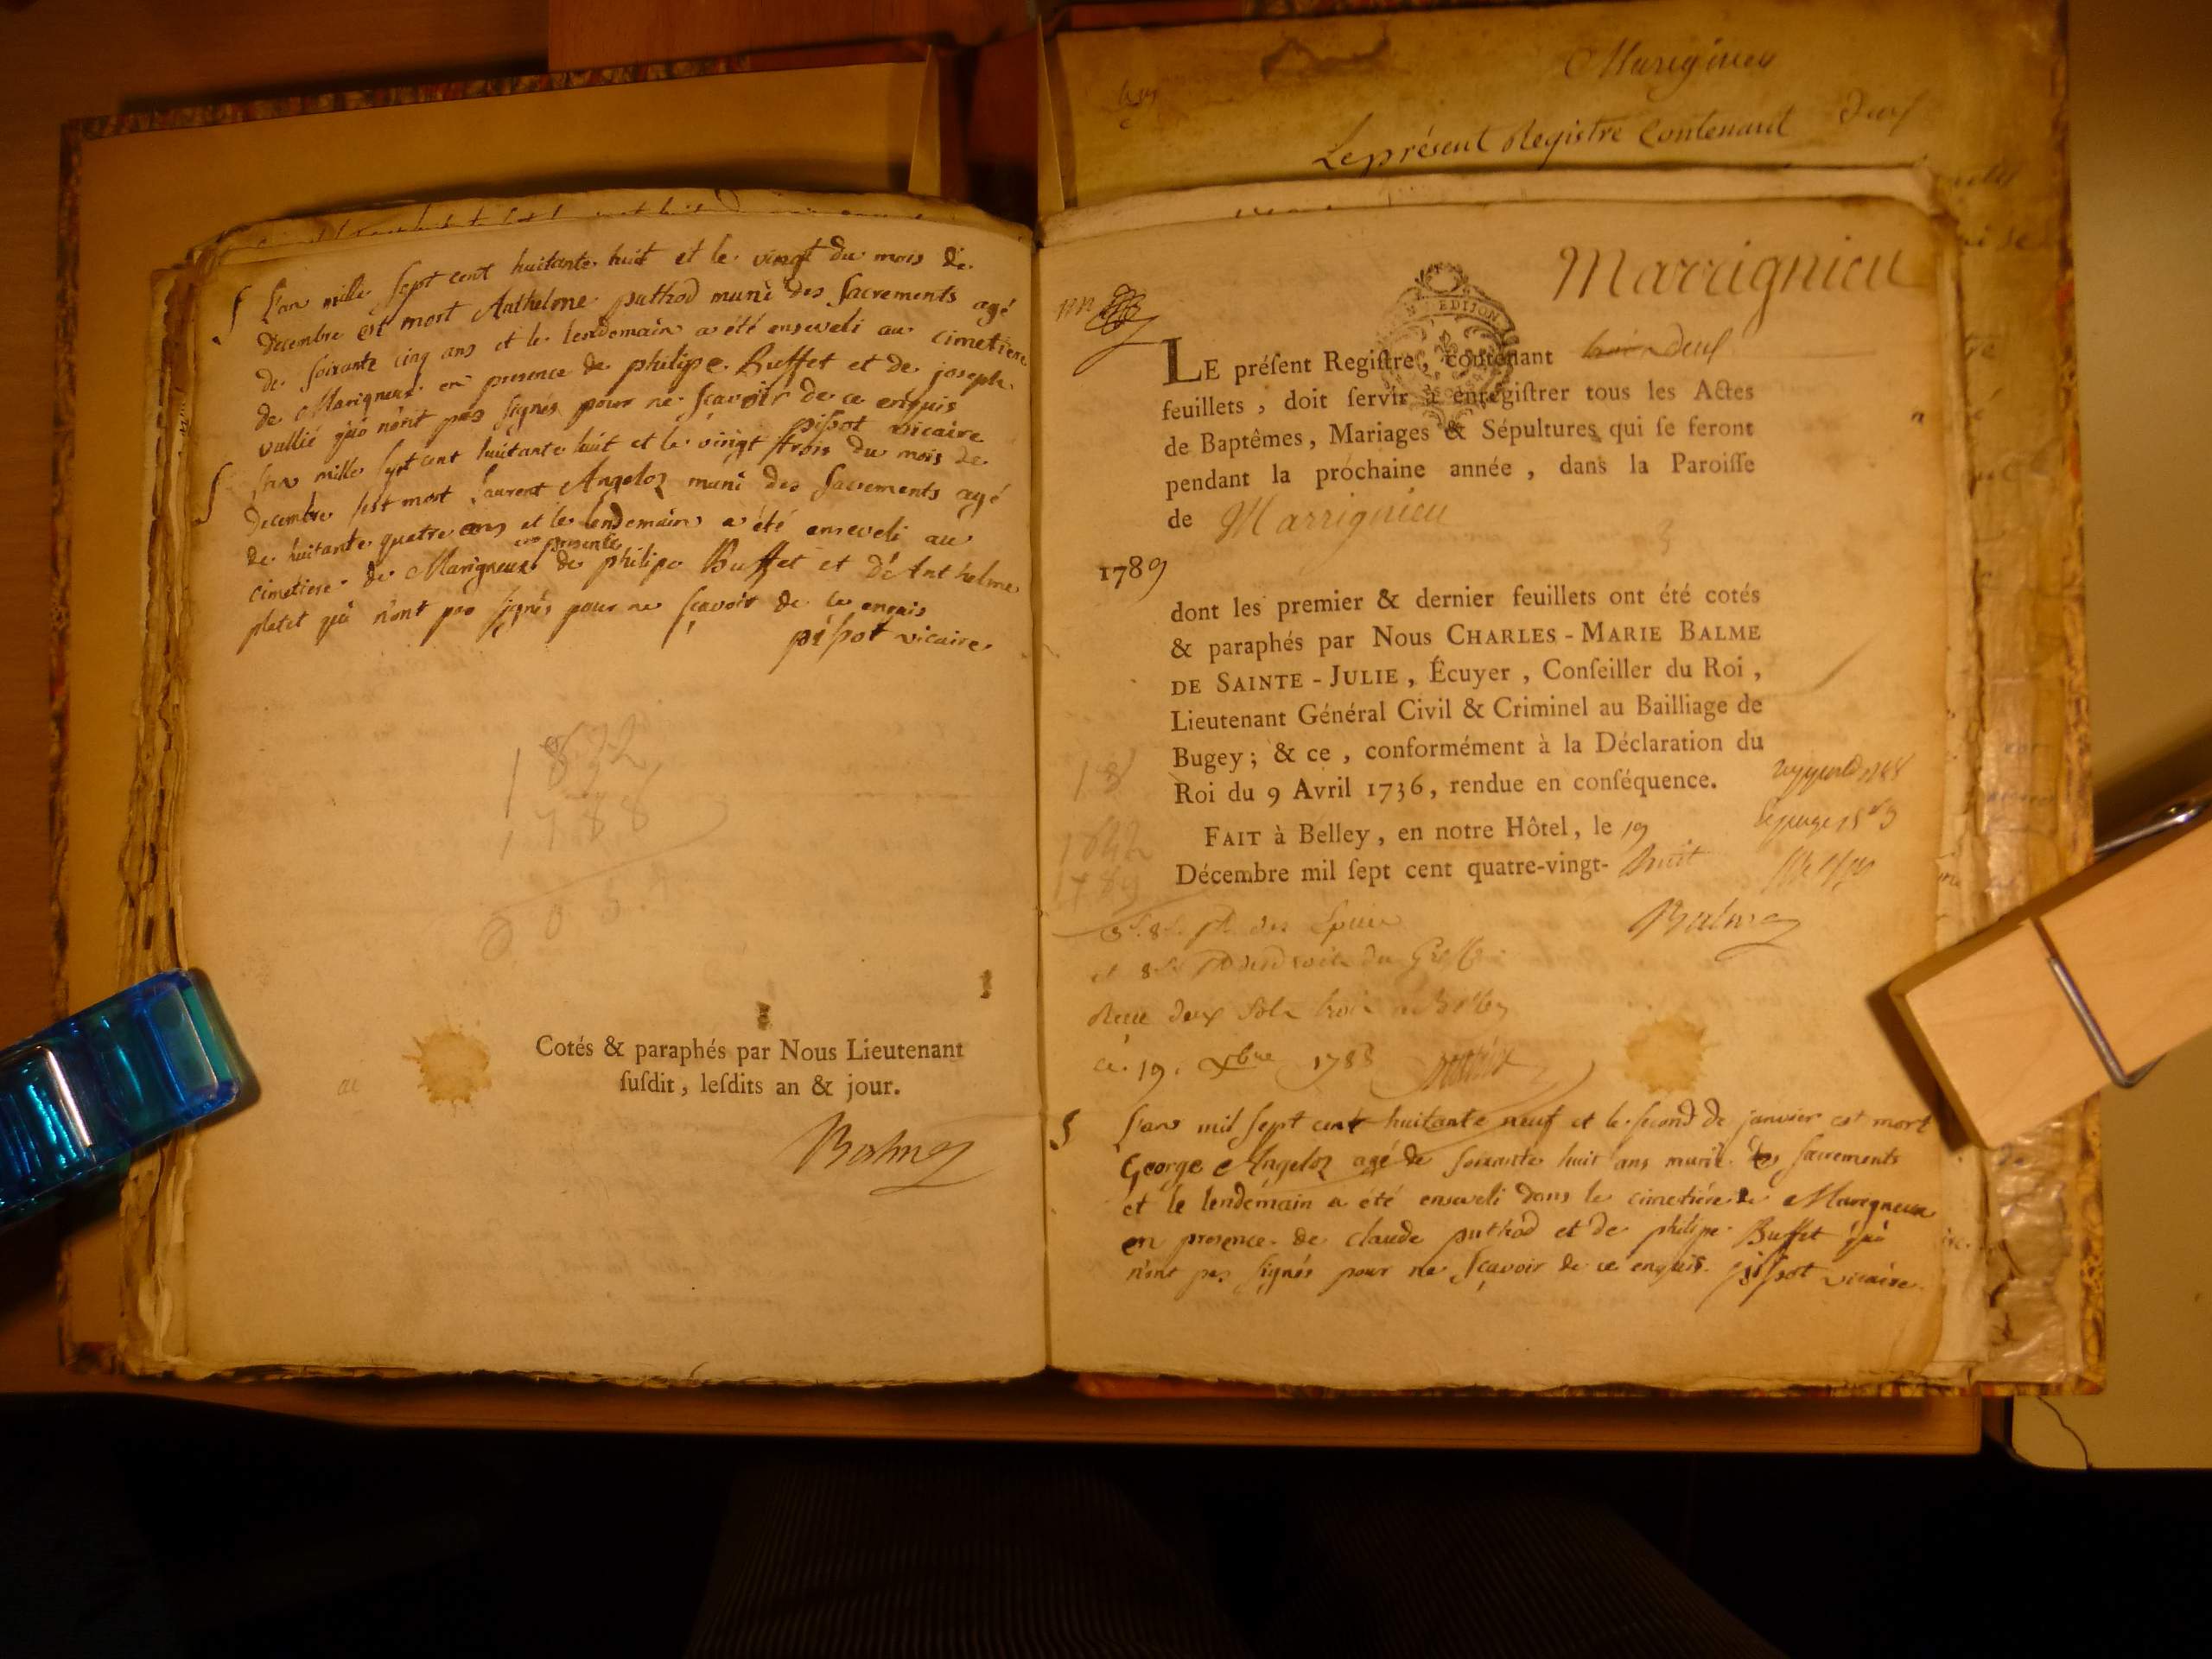 S L'an mille sept cent huitante huit et le vingt du mois de
decembre est mort Anthelme puthod muni des sacrements agé
de soixante cinq ans et le lendemain a été enseveli au cimetiere
de Marigneux en presence de philipe Buffet et de joseph
vallié qui n'ont pas signés pour ne sçavoir de ce enquis
pissot vicaire
S L'an mille sept cent huitante huit et le vingt trois du mois de
decembre est mort Laurent Angeloz muni des sacrements agé
de huitante quatre ans et le lendemain a été enseveli au
cimetiere de Marigneux en presence de philipe Buffet et d'Anthelme
platet qui n'ont pas signés pour ne sçavoir de ce enquis
pissot vicaire
1832
1788
Cotés & paraphés par Nous Lieutenant
ſuſdit, leſdits an & jour.
Balme
Marignieu
Le présent Registre Contenant deux
Marrignieu
EDIJON
LE préſent Regiſtre, contenant deux
feuillets, doit ſervir à enregiſtrer tous les Actes
de Baptêmes, Mariages & Sépultures qui ſe feront
pendant la prochaine année, dans la Paroiſſe
de Marrignieu
1789
dont les premier & dernier feuillets ont été cotés
& paraphés par Nous CHARLES-MARIE BALME
DE SAINTE-JULIE, Écuyer, Conſeiller du Roi,
Lieutenant Général Civil & Criminel au Bailliage de
Bugey; & ce, conformément à la Déclaration du
Roi du 9 Avril 1736, rendue en conſéquence.
FAIT à Belley, en notre Hôtel, le 19
Décembre mil ſept cent quatre-vingt-huit
Balme
18
1842
1789
ce 19. Xbre 1788
S L'an mil sept cent huitante neuf et le second de janvier est mort
George Angeloz agé de soixante huit ans muni des sacrements
et le lendemain a été enseveli dans le cimetiére de Marigneux
en presence de claude puthod et de philipe Buffet qui
n'ont pas signés pour ne sçavoir de ce enquis. pissot vicaire